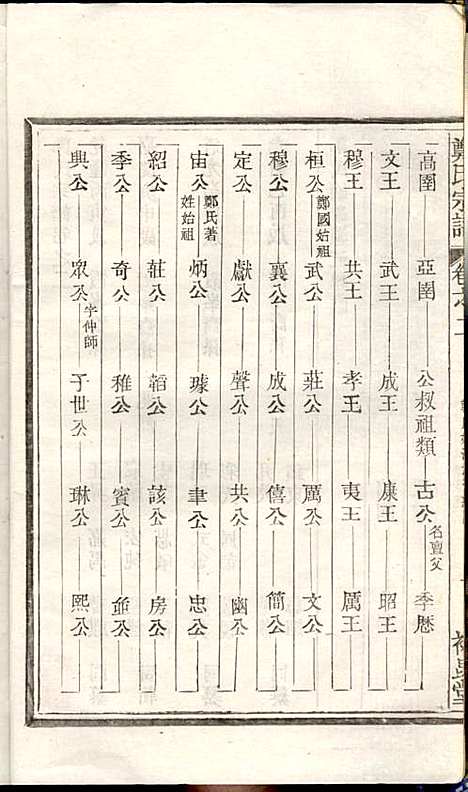 鄭氏宗譜
卷之二
高圉 亞圉 公叔祖類 古公名亶父 季歷
文王 武王 成王 康王 昭王
穆王 共王 孝王 夷王 厲王
桓公鄭國始祖 武公 莊公 厲公 文公
穆公 襄公 成公 僖公 簡公
定公 獻公 聲公 共公 幽公
宙公鄭氏著姓始祖 炳公 璩公 聿公 忠公
紹公 莊公 韜公 該公 房公
季公 奇公 稚公 賓公 公
興公 眾公字仲師 子世公 琳公 熙公